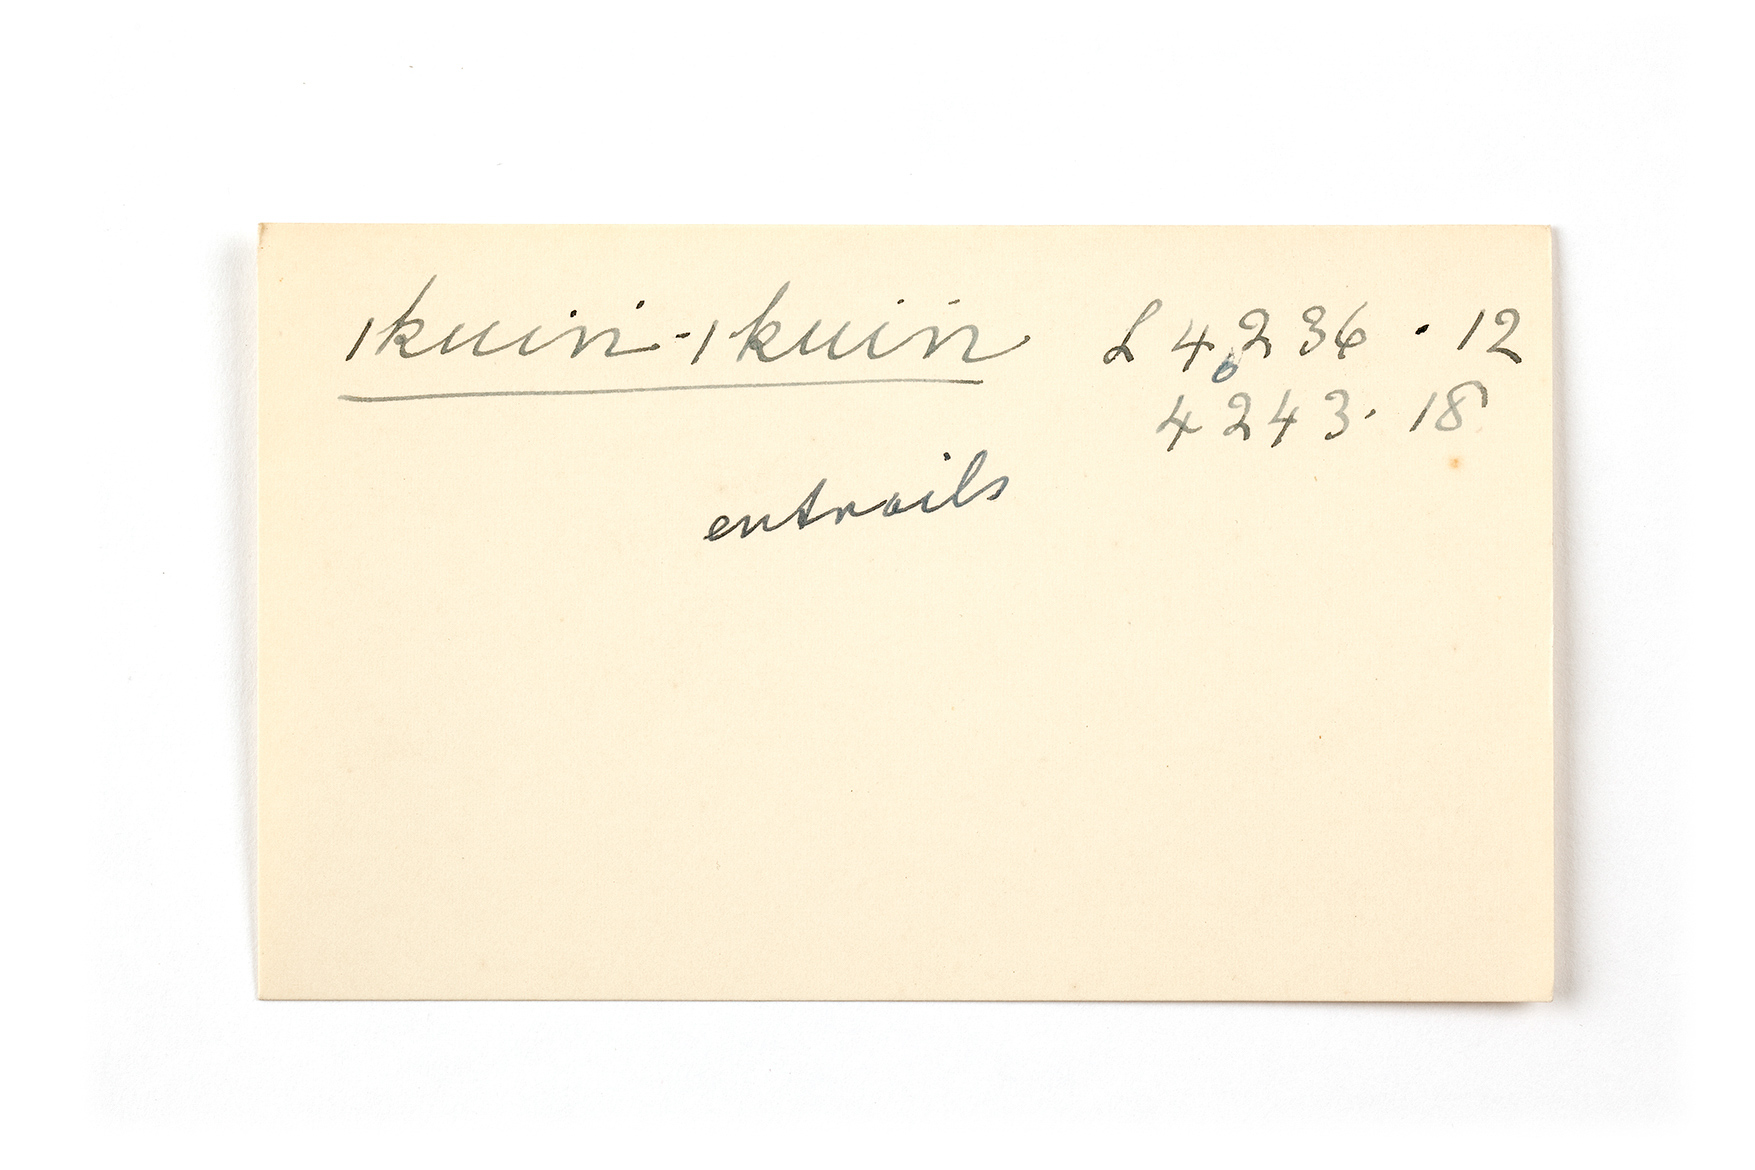 ikuiń-ikuiń L 4236·12
4243·18
entrails